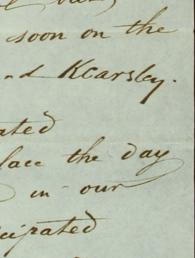 soon on the
and Kearsley.
ated
lace the day
in our
cipated